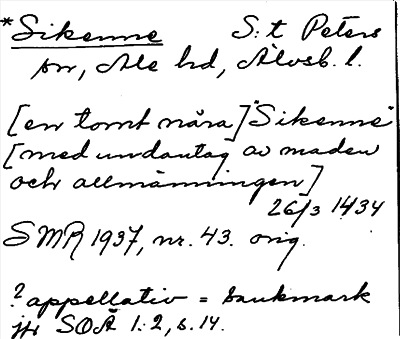 *Sikenne S:t Peters
sn, Ale hd, Älvsb. l.
[en tomt nära] "Sikenne"
[med undantag av maden
och allmänningen]
26/3 1434
SMR 1937, nr. 43. orig.
? appellativ = sankmark
jfr SOÄ 1:2, s. 14.